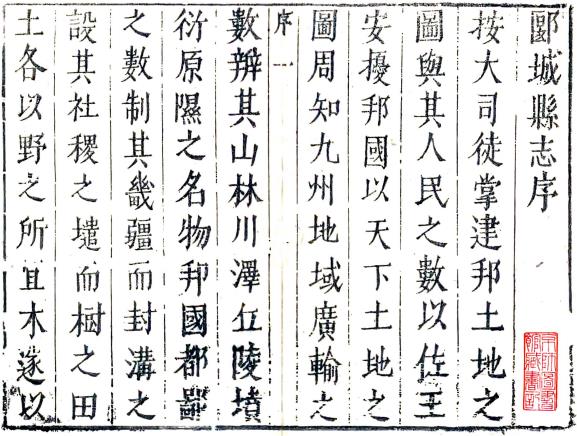 郾城縣志序
按大司徒掌建邦土地之
圖與其人民之數以佐王
安擾邦國以天下土地之
圖周知九州地域廣輪之
序 一
數辨其山林川澤丘陵墳
衍原隰之名物邦國都鄙
之數制其畿疆而封溝之
設其社稷之壝而樹之田
土各以野之所宜木遂以
京師圖書
館藏書記